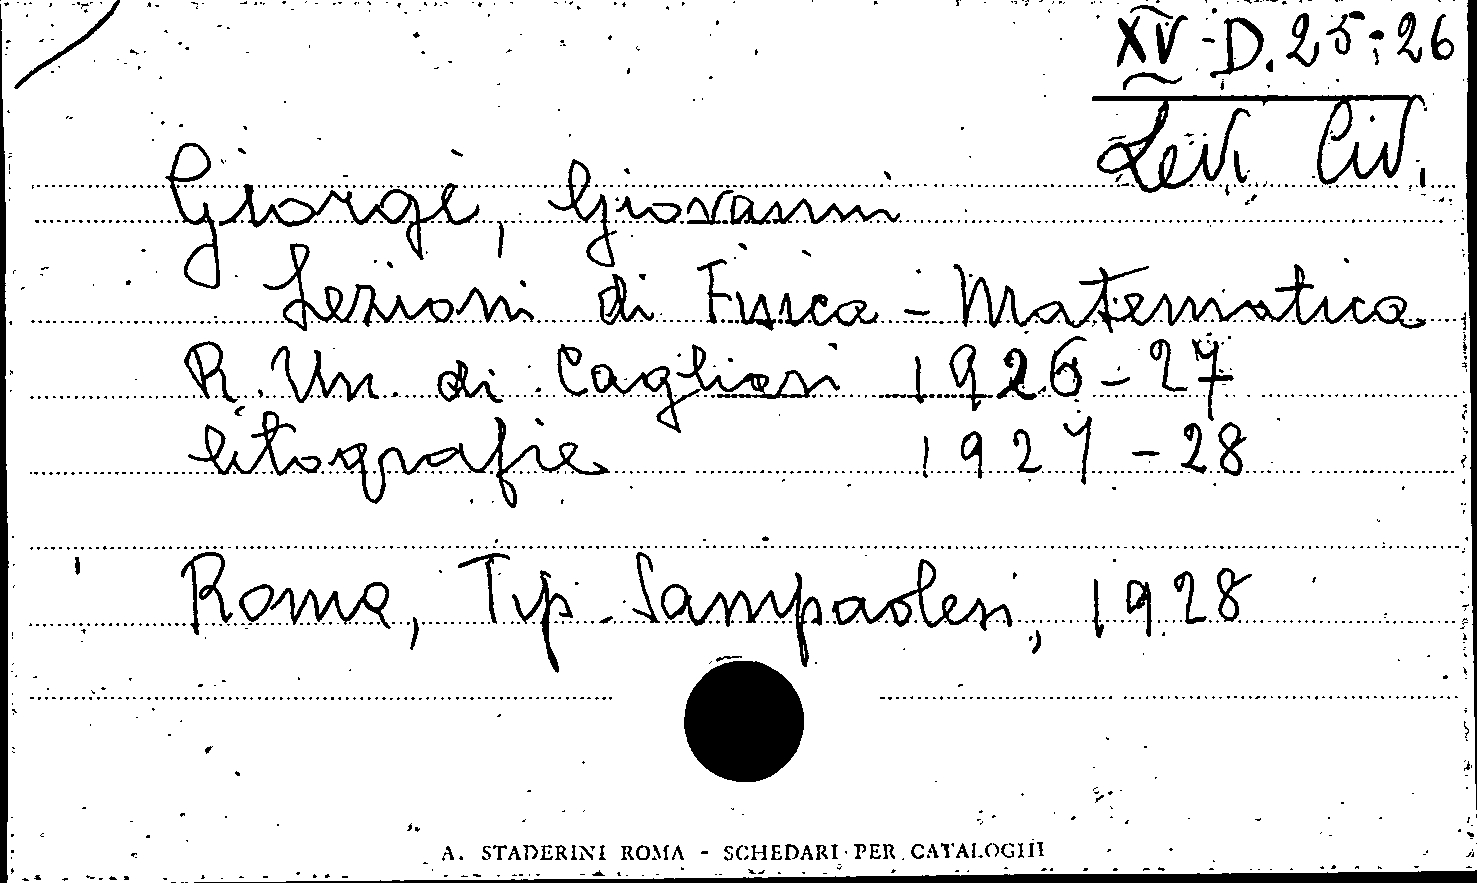 XV-D.25:26
Levi Civ.
Giorgi, Giovanni
Lezioni di Fisica-Matematica
R. Un. di Cagliari 1926-27
litografie 1927-28
Roma, Tip. Sampaolesi, 1928
A. STADERINI ROMA - SCHEDARI PER CATALOGHI